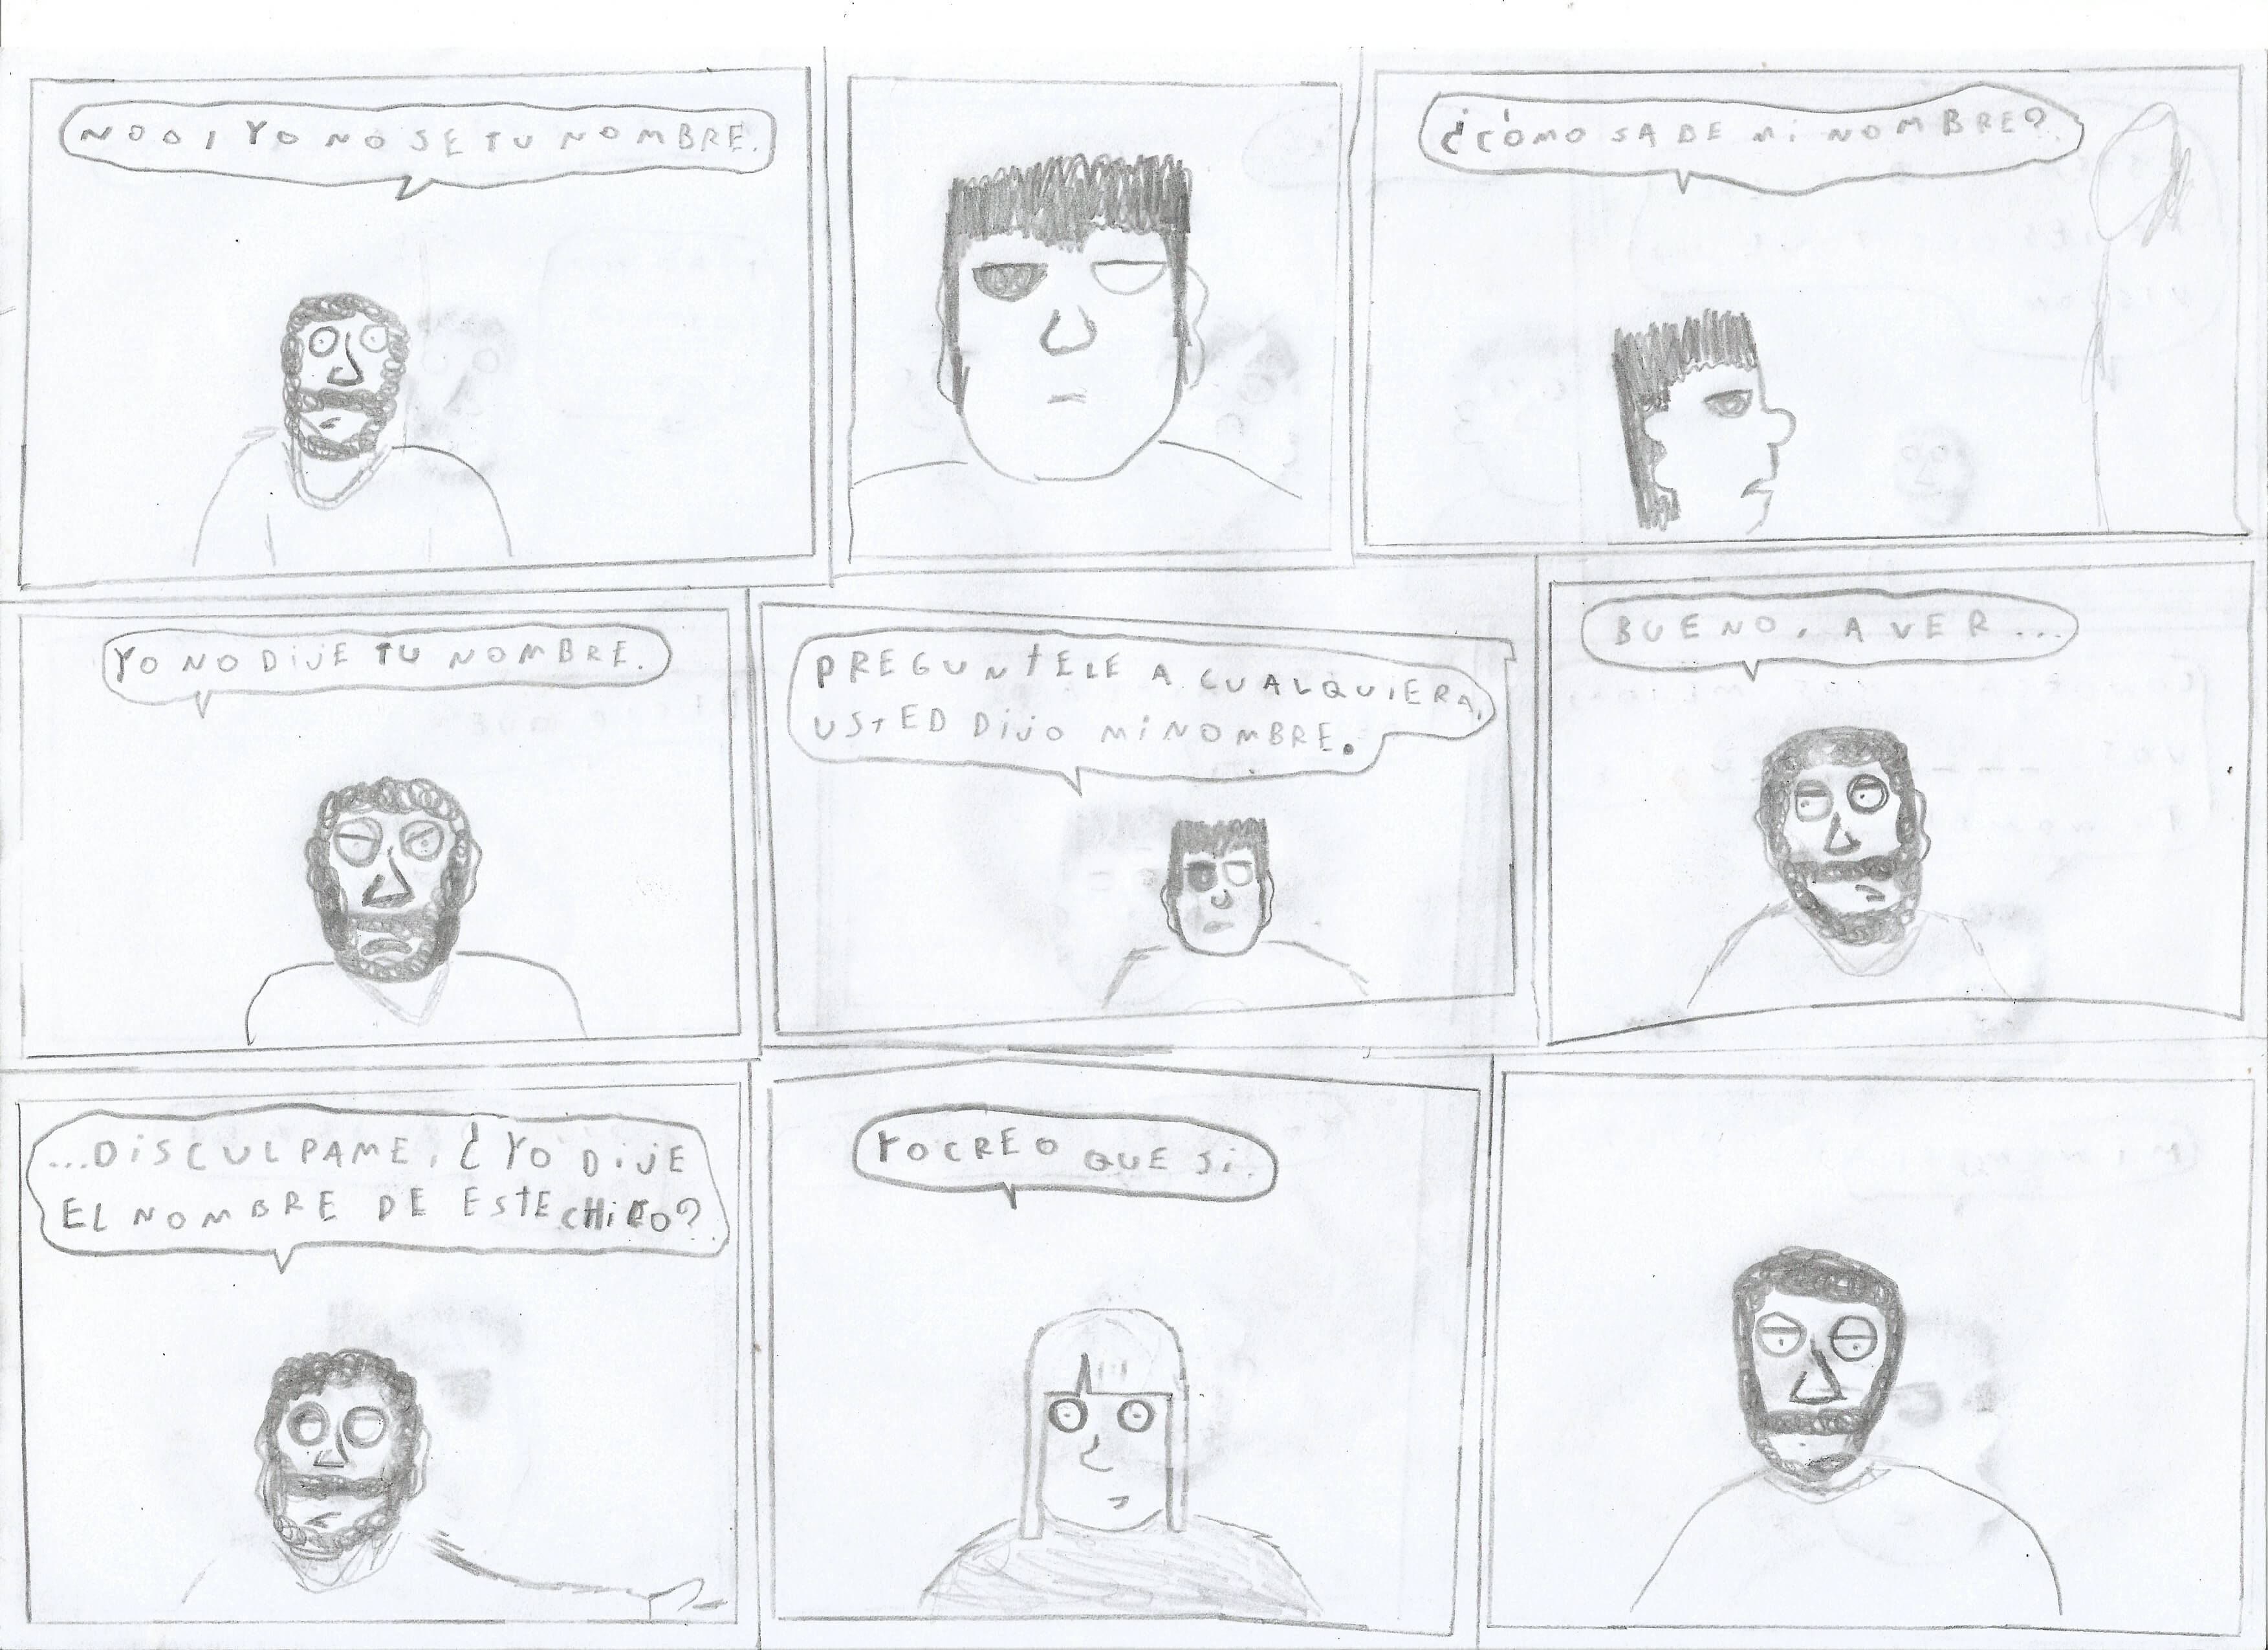 NOO, YO NO SE TU NOMBRE.
¿CÓMO SABE MI NOMBRE?
YO NO DIJE TU NOMBRE.
PREGUNTELE A CUALQUIERA,
USTED DIJO MI NOMBRE.
BUENO, A VER...
...DISCULPAME, ¿YO DIJE
EL NOMBRE DE ESTE CHICO?
YO CREO QUE SI.